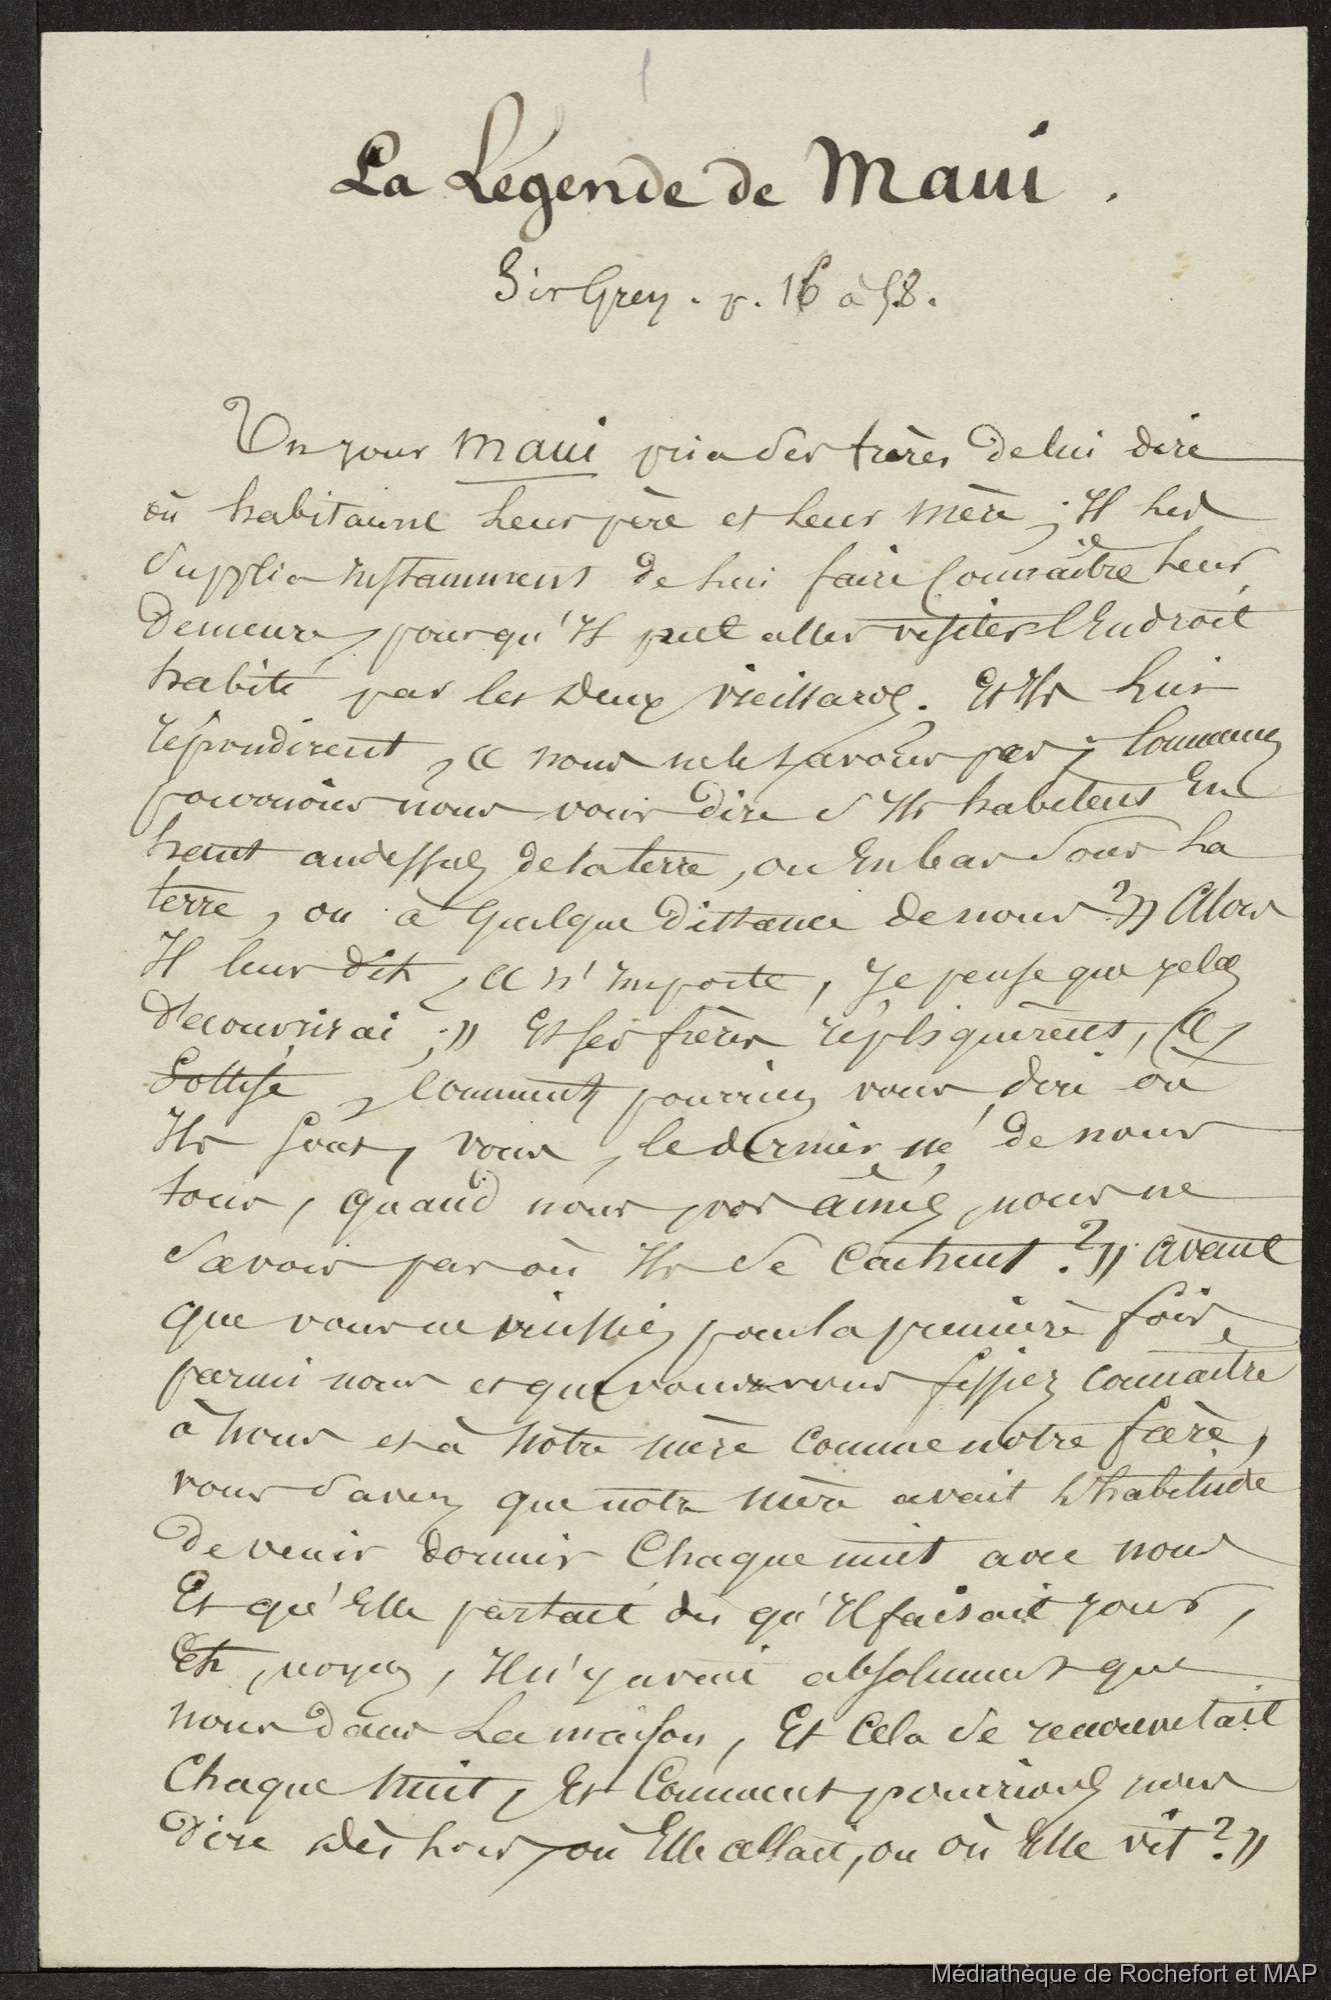 La Légende de Maui.
Sir Grey. p. 16 à 58.
Un jour Maui pria ses frères de lui dire
où habitaient leur père et leur mère ; Il les
supplia instamment de lui faire connaître leur
demeure, pour qu'Il put aller visiter l'Endroit
habité par les deux vieillards. Et Ils lui
répondirent, « nous ne le savons pas ; Comment
pourrions nous vous dire s'Ils habitent En
haut audessus de la terre, ou En bas sous la
terre, ou à quelque distance de nous ? » Alors
Il leur dit, « n'Importe, Je pense que je les
découvrirai ; » Et ses frères répliquèrent, «
Sottise, Comment pourriez vous dire où
Ils sont, vous, le dernier né de nous
tous, quand nous vos aînés, nous ne
savons pas où Ils se cachent ? » avant
que vous ne vinssiez pour la première fois,
parmi nous et que vous vous fissiez connaître
à nous et à notre mère comme notre frère,
vous savez que notre mère avait l'habitude
de venir dormir Chaque nuit avec nous
Et qu'Elle partait dès qu'Il faisait jour,
Et, voyez, Il n'y avait absolument que
nous dans La maison, Et Cela se renouvelait
Chaque nuit, Et Comment pourrions nous
dire dès lors, où Elle allait, ou où Elle vit ? »
Médiathèque de Rochefort et MAP